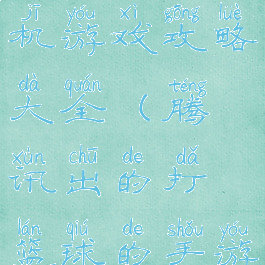 jī yóu xì gōng lüè
机游戏攻略
dà quán téng
大全（腾
xùn chū de dǎ
讯出的打
lán qiú de shǒu yóu
篮球的手游